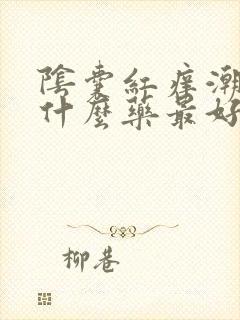 陰囊紅痒潮
什麼藥最好
柳巷